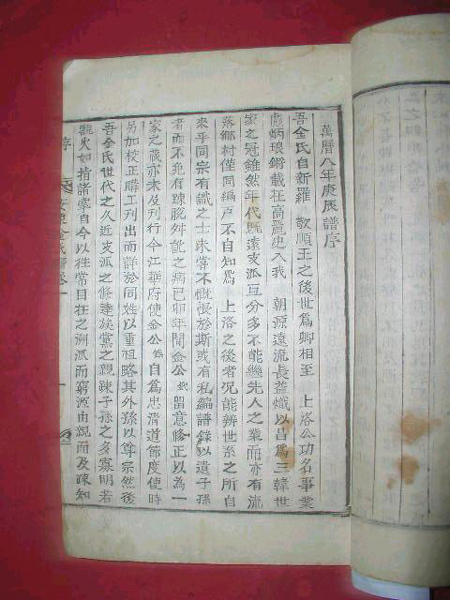 萬曆八年庚辰譜序
吾金氏自新羅 敬順王之後世爲卿相至 上洛公功名事業
炳琅鏘載在高麗史入我 朝源遠流長益熾以昌爲三韓世
家之冠雖然年代旣遠支派互分多不能繼先人之業而亦有流
落鄉村僅同編戶不自知爲 上洛之後者况能辨世系之所自
來乎同宗有識之士未嘗不慨恨於斯或有私編譜錄以遺子孫
者而不免有疎脫舛訛之病已卯年間金公 留意修正以爲一
家之藏亦未及刊行今江華府使金公 自爲忠淸道節度使時
另加校正聯工刊出而詳於同姓以重祖略其外孫以尊宗然後
吾金氏世代之久近支派之條達族黨之親疎子孫之多寡明若
觀火如指諸掌自今以往常目在之溯派而窮源由親而及疎知
序